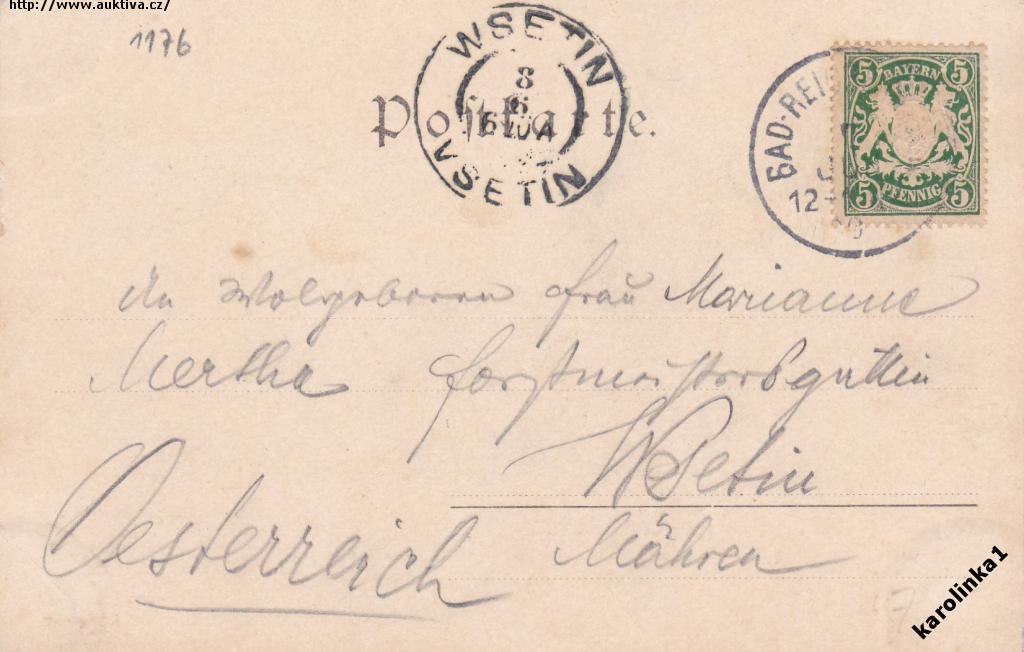 http://www.auktiva.cz/
1176
WSETIN
8
6
VSETIN
Postkarte.
BAD-REI
12-
5 BAYERN 5
5 PFENNIG 5
An Wolgeboren Frau Marianne
Mertha Forstmeistersgattin
Wsetin
Oesterreich
Mähren
karolinka1